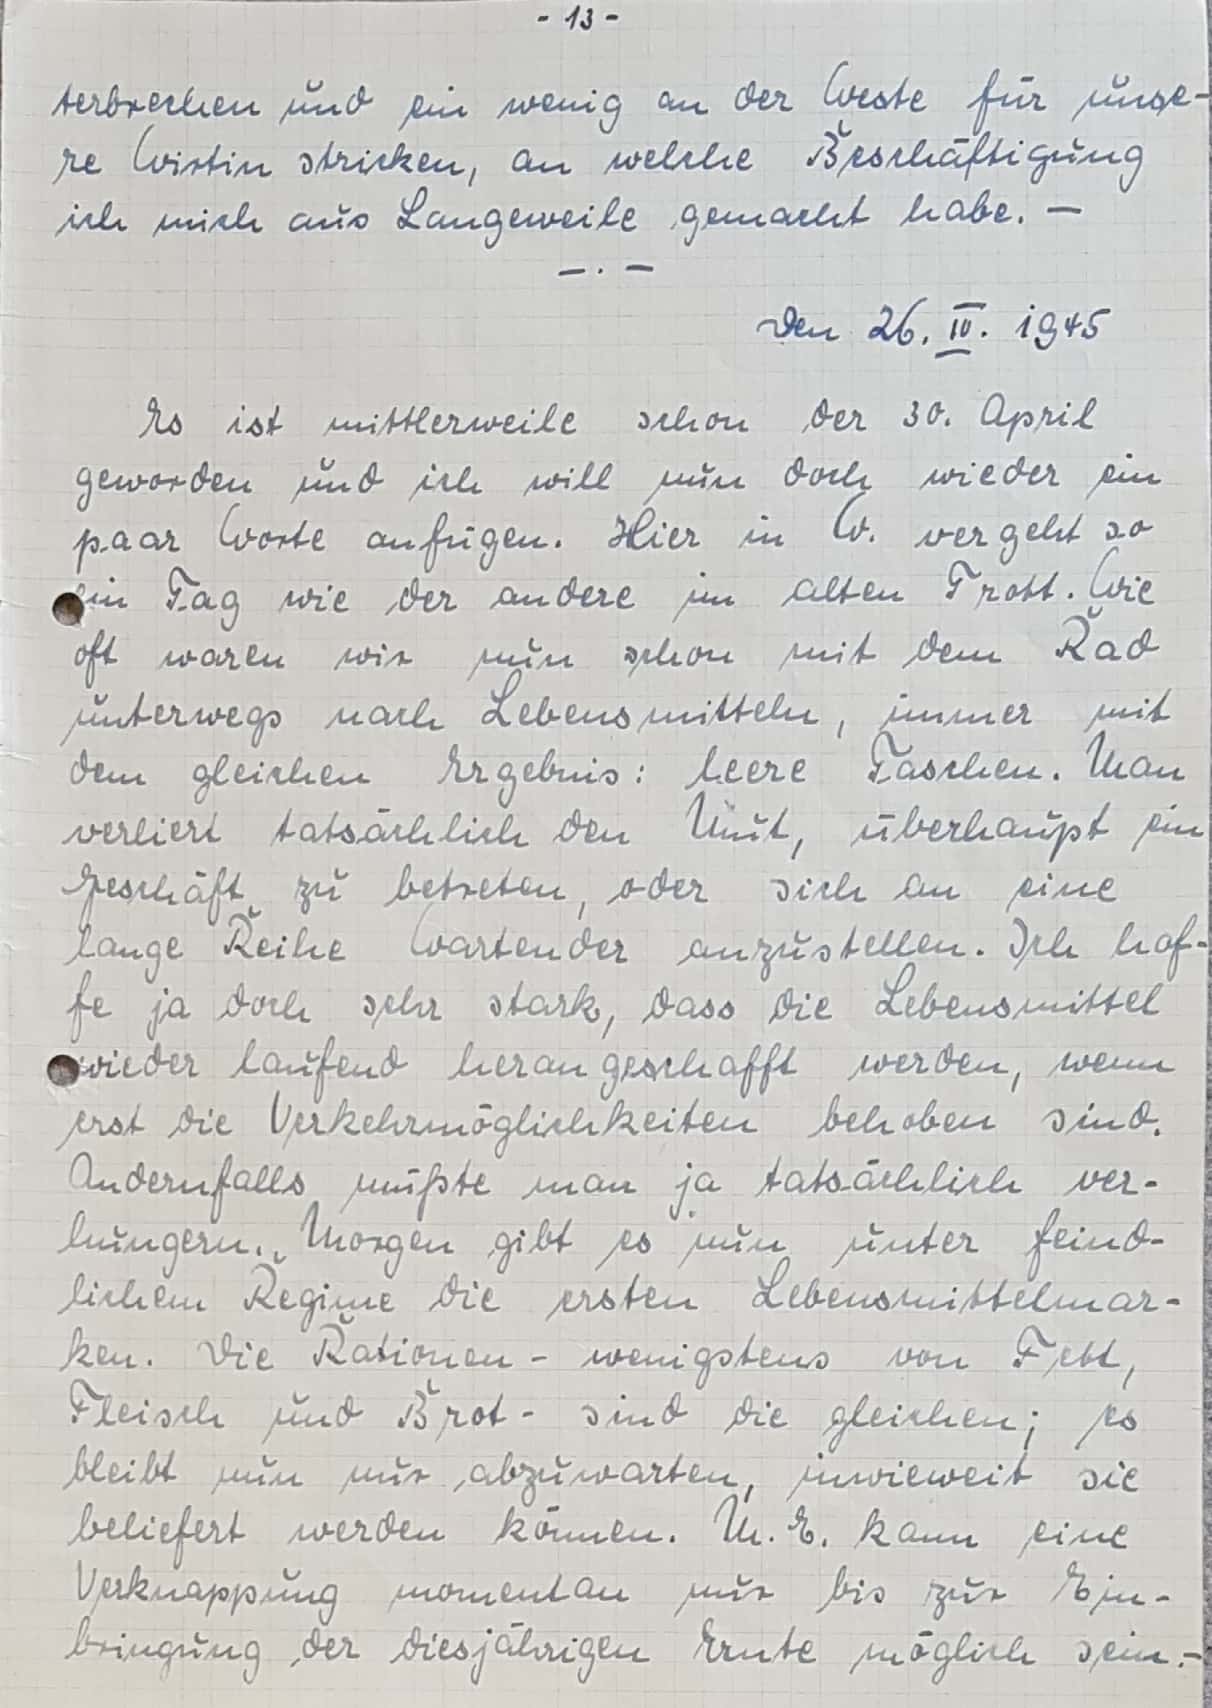 - 13 -
terbrechen und ein wenig an der Weste für unse-
re Wirtin stricken, an welche Beschäftigung
ich mich aus Langeweile gemacht habe. —
— . —
Den 26. IV. 1945
Es ist mittlerweile schon der 30. April
geworden und ich will nun doch wieder ein
paar Worte anfügen. Hier in W. vergeht so
ein Tag wie der andere im alten Trott. Wie
oft waren wir nun schon mit dem Rad
unterwegs nach Lebensmitteln, immer mit
dem gleichen Ergebnis: leere Taschen. Man
verliert tatsächlich den Mut, überhaupt ein
Geschäft zu betreten, oder sich an eine
lange Reihe Wartender anzustellen. Ich hof-
fe ja doch sehr stark, dass die Lebensmittel
wieder laufend herangeschafft werden, wenn
erst die Verkehrmöglichkeiten behoben sind.
Andernfalls müßte man ja tatsächlich ver-
hungern. Morgen gibt es nun unter feind-
lichem Regime die ersten Lebensmittelmar-
ken. Die Rationen - wenigstens von Fett,
Fleisch und Brot - sind die gleichen; es
bleibt nun nur abzuwarten, inwieweit sie
beliefert werden können. M. E. kann eine
Verknappung momentan nur bis zur Ein-
bringung der diesjährigen Ernte möglich sein. -